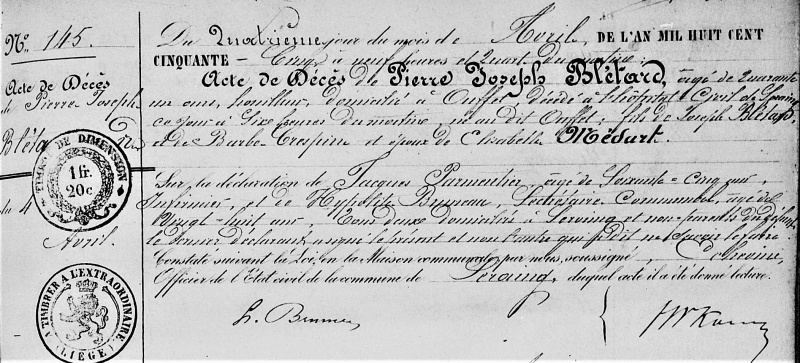 N° 145.
Acte de Décès
de Pierre Joseph
Blétard
du 4
Avril.
TIMBRE DE DIMENSION
1 fr.
20 c
TIMBRER A L'EXTRAORDINAIRE
(LIÉGE)
Du Quatrième jour du mois de Avril DE L'AN MIL HUIT CENT
CINQUANTE – Cinq à neuf heures et Quart du matin;
Acte de Décès de Pierre Joseph Blétard, agé de Quarante
un ans, houilleur, domicilié à Ouffet décédé à l'hôpital Civil de Seraing
ce jour à Six heures du matin, né au dit Ouffet; fils de Joseph Blétard
et de Barbe Crespin et époux de Elisabeth Médart.
Sur la déclaration de Jacques Parmentier agé de Soixante-Cinq ans
Infirmier, et de Hypolite Bruneau Secrétaire Communal, agé de
Vingt-huit ans, Tous deux domiciliés à Seraing et non parents du défunt
le Second déclarant a signé le présent et non l'autre qui a dit ne savoir le faire
Constaté suivant la Loi, en la Maison communale par nous, soussigné,
Officier de l'Etat civil de la commune de Seraing, duquel acte il a été donné lecture.